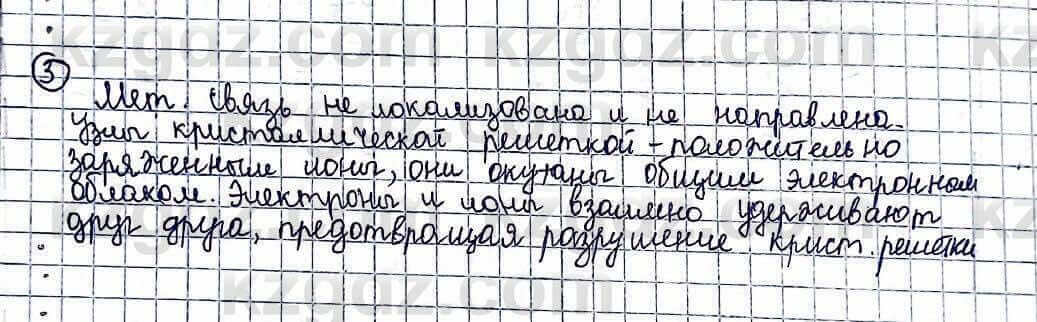 3
Мет. связь не локализована и не направлена.
Узлы кристаллической решеткой - положительно
заряженные ионы, они окутаны общим электронным
облаком. Электроны и ионы взаимно удерживают
друг друга, предотвращая разрушение крист. решетки
kzgdz.com